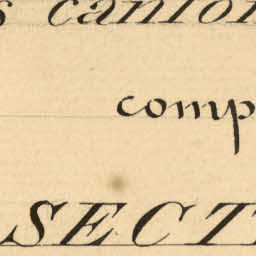 s canton
comp
SECT